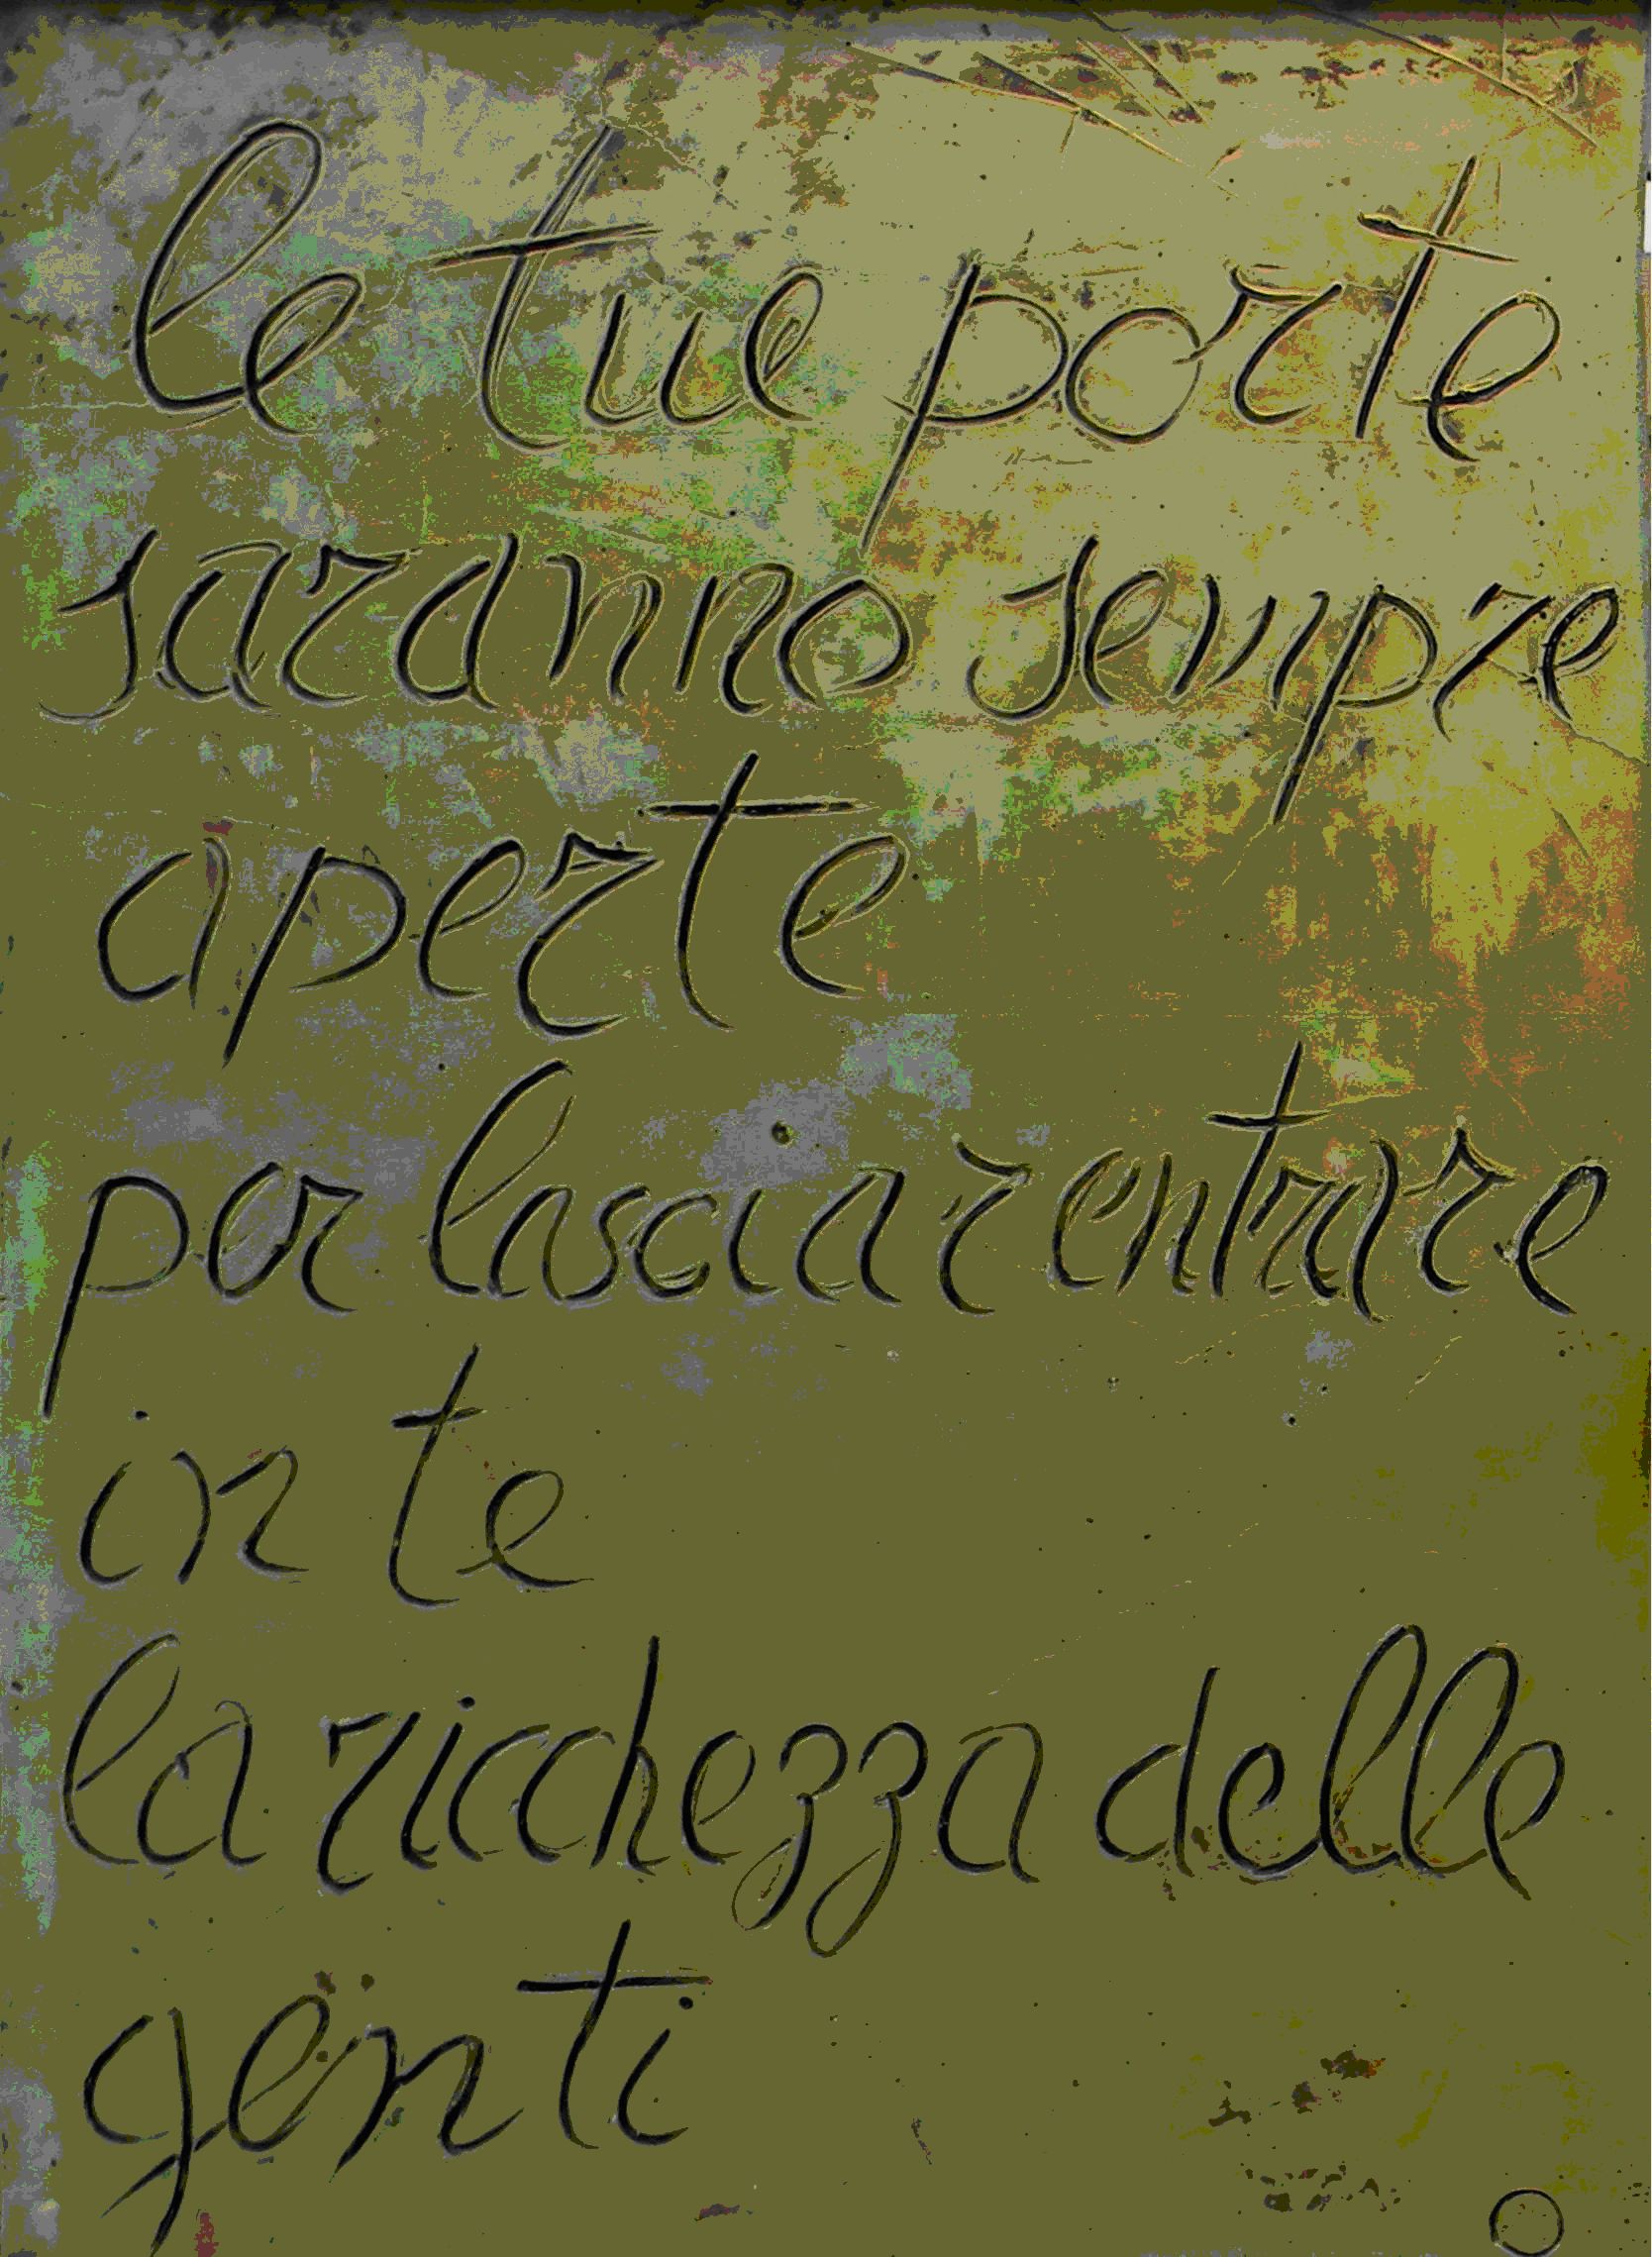 le tue porte
saranno sempre
aperte
per lasciar entrare
in te
la ricchezza delle
genti